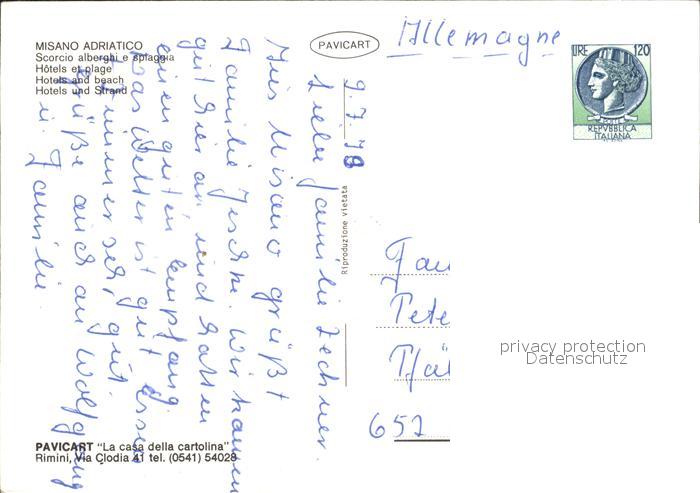 MISANO ADRIATICO
Scorcio alberghi e spiaggia
Hôtels et plage
Hotels and beach
Hotels und Strand
PAVICART
Allemagne
LIRE 120
REPVBBLICA
ITALIANA
9.7.78
Liebe Familie Lechner.
Aus Misano grüßt
Familie Jeschke. Wir kamen
gut hier an und hatten
einen guten Empfang.
Das Wetter ist gut Essen
Zimmer sehr gut.
Grüße auch an Wolfgang
u. Familie.
Riproduzione vietata
Fam
Pete
Pfäl
657
privacy protection
Datenschutz
PAVICART "La casa della cartolina"
Rimini, Via Clodia 41 tel. (0541) 54028